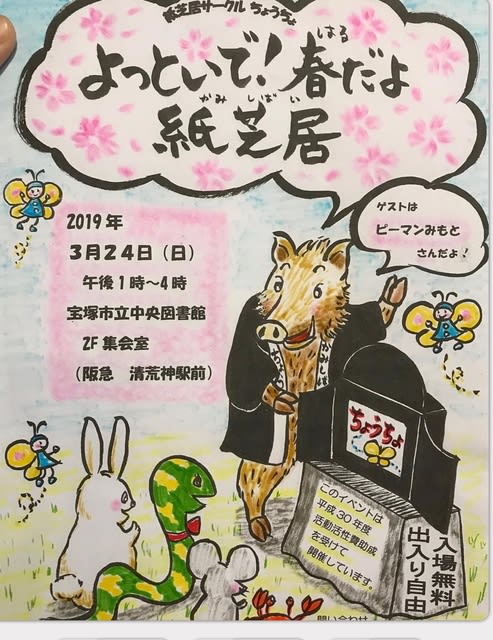 紙芝居サークル ちょうちょ
はる
よっといで！春だよ
かみしばい
紙芝居
ゲストは
ピーマンみもと
さんだよ！
2019年
3月24日（日）
午後1時〜4時
宝塚市立中央図書館
2F 集会室
（阪急 清荒神駅前）
かみしば
ちょうちょ
このイベントは
平成30年度
活動活性費助成
を受けて
開催しています。
入場無料
出入り自由
問い合わせ